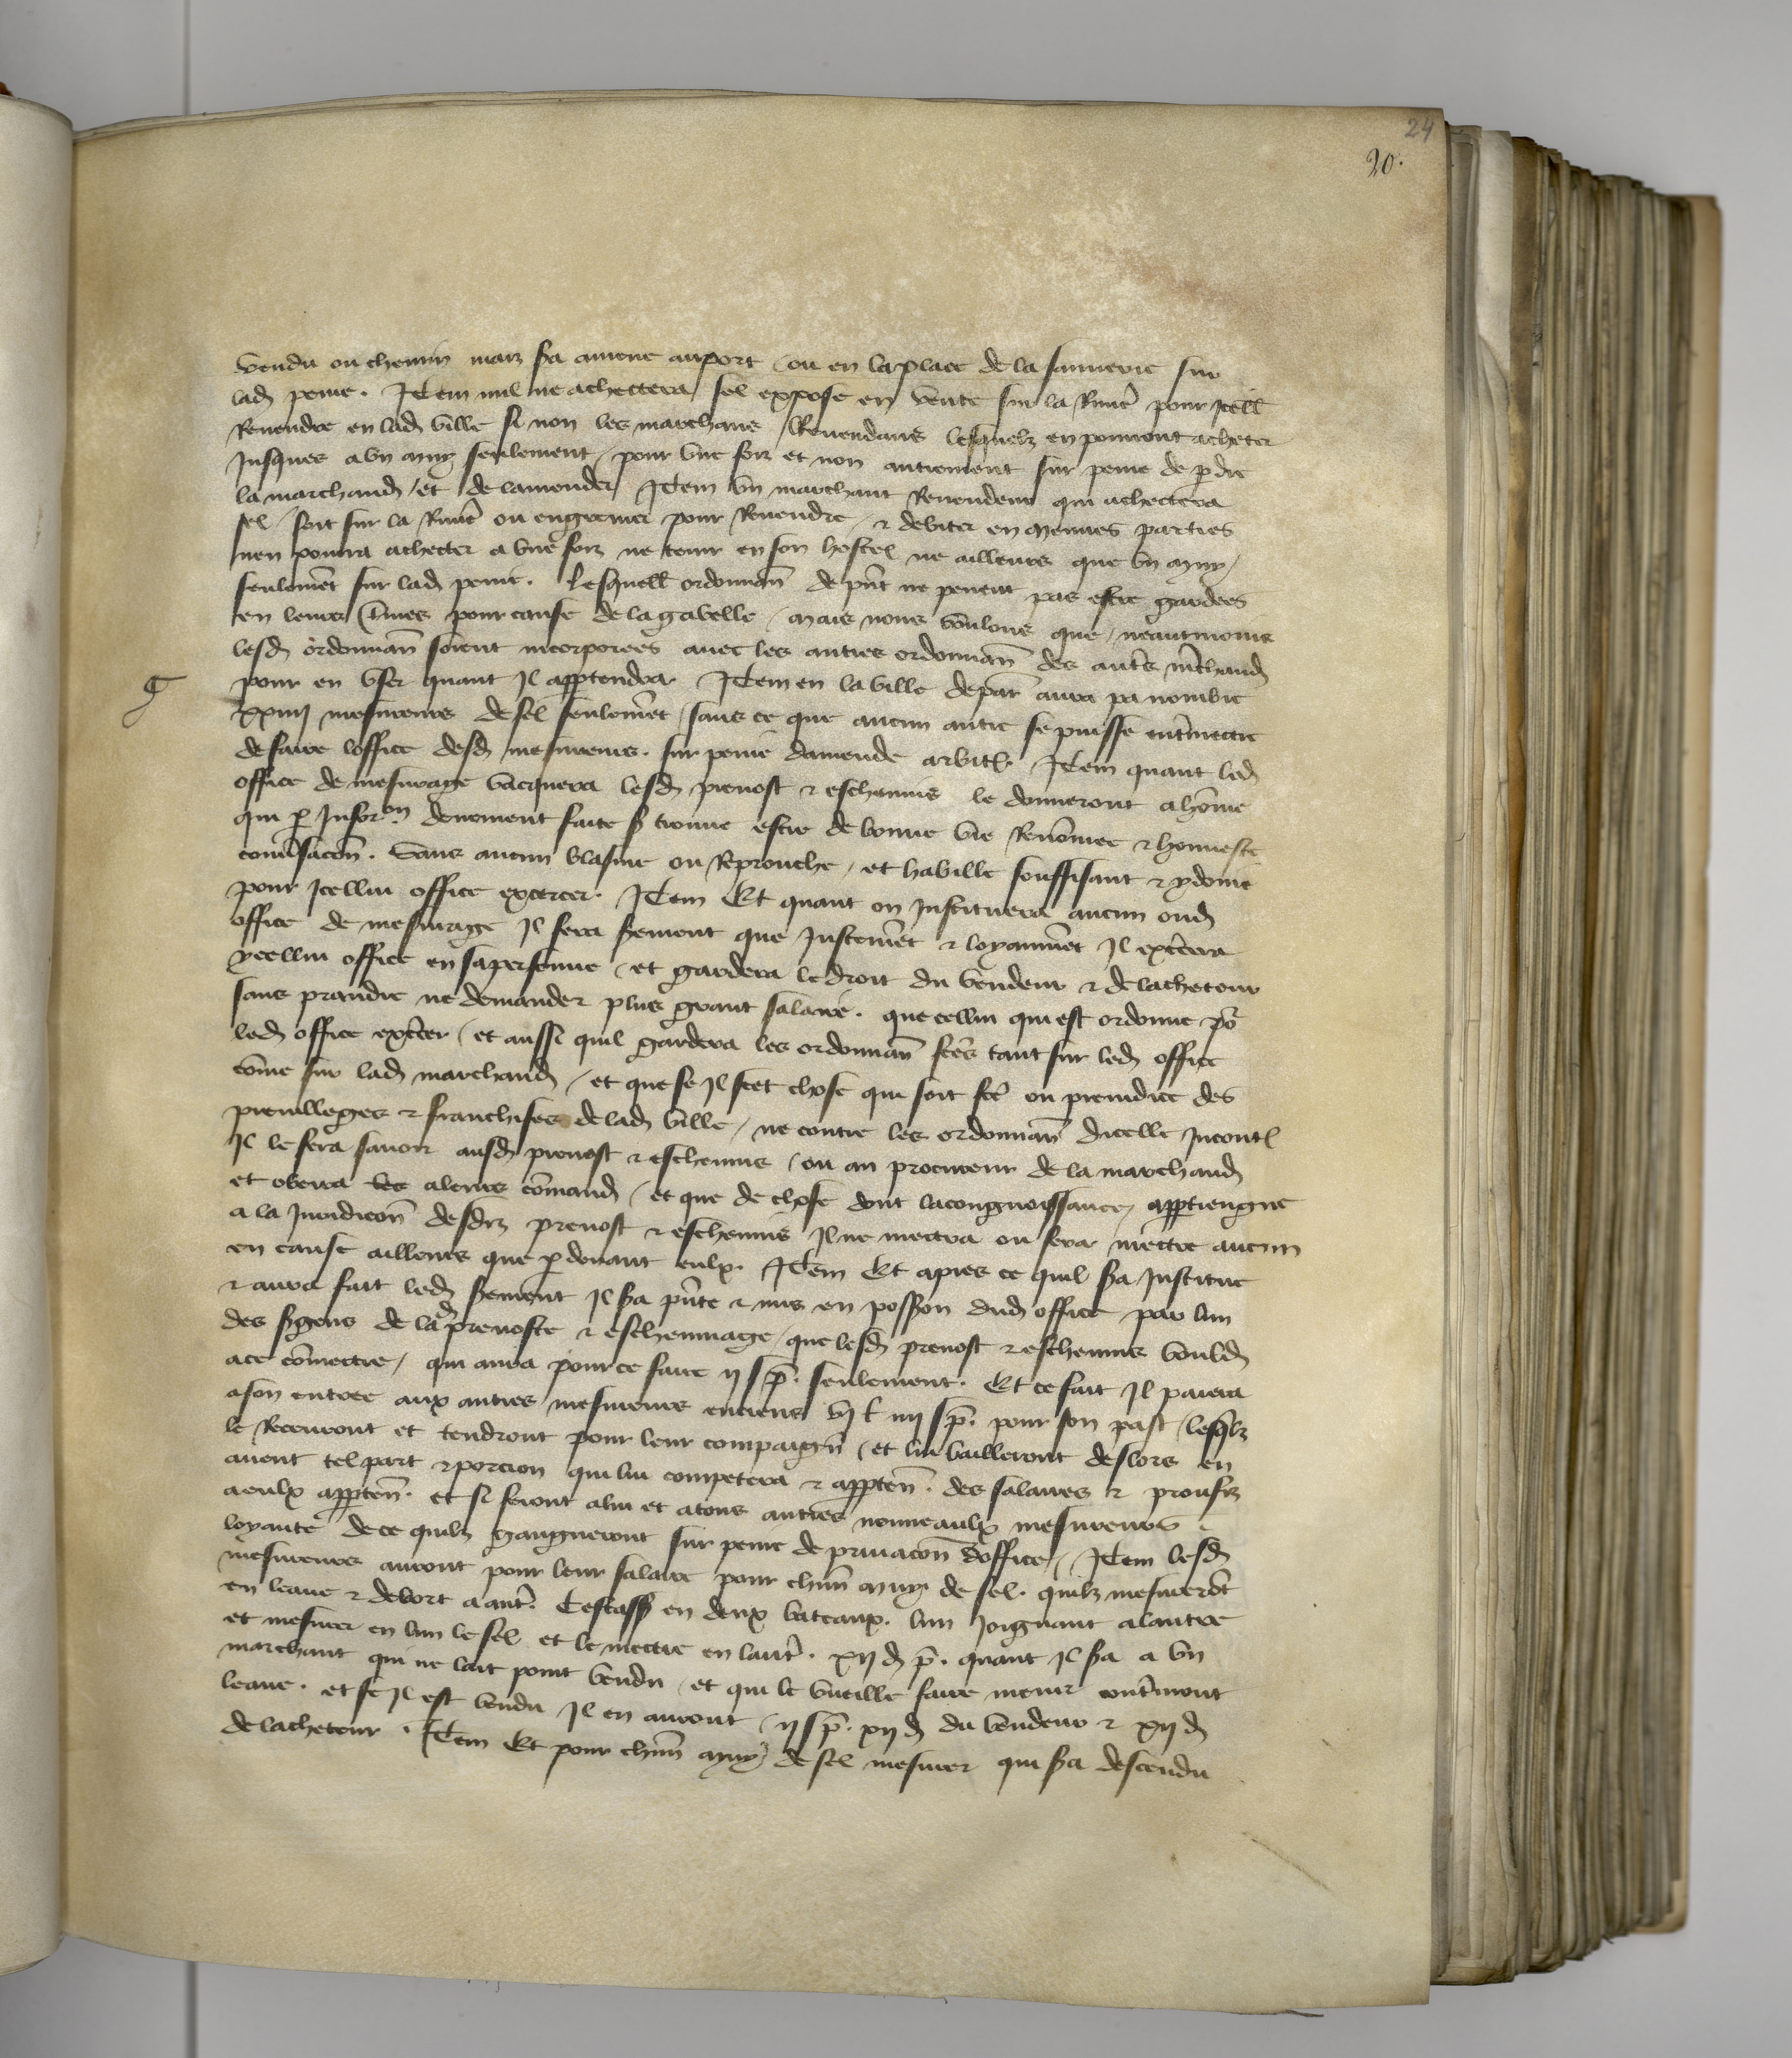 24
20.
vendu ou chemin maiz sa amene au port / ou en la place de la saunerie sur
lad peine. Item nul ne achectera sel expose en vente sur la Riuie pour Icell
Reuendre en lad ville si non les marchans Reuendans lesquelz en pourront acheter
Jusques a vn muy seulement / pour vne foiz et non autrement sur peine de pdre
la marchand / et de lamender / Item vn marchant Reuendeur qui achectera
sel / soit sur la Riuie ou en grenier pour Reuendre / & debiter en menues parties
nen pourra achecter a vne foiz ne tenir en son hostel ne ailleurs que vn muy /
seulemet sur lad peine. Lesquell ordonnan de pnt ne peuent pas estre gardees
en leurs t'mes pour cause de la gabelle / mais nous voulons que / neantmoins
lesd ordonnan soient incorporees auec les autres ordonnan des autes mchand
g
pour en vser quant Il apptendra Item en la ville de par aura pa nombre
xxiiij mesureurs de sel seulemet / sans ce que aucun autre se puisse entmectre
de faire loffice desd mesureurs. sur peine damende arbitl. Item quant led
office de mesurage vacquera lesd preuost & escheuins le donneront a home
qui p Infor.on deuement faite s trouue estre de bonne vie Renomee & honneste
conusacon. Sans aucun blasme ou Reprouche / et habille souffisant & ydoine
pour Icellui office excercer. Item Et quant on Instituera aucun oud
office de mesurage Il fera sement que Justemet & loyaumet Il excera
ycellui office en sa personne / et gardera le droit du vendeur & de lacheteur
sans prandre ne demander plus grant salaire. que cellui qui est ordonne po
led office excer / et aussi quil gardera les ordonnan fces tant sur led office
come sur lad marchand / et que se Il scet chose qui soit fce ou preiudice des
preuilleges & franchises de lad ville / ne contre les ordonnan dicelle Incontl
Il le fera sauoir ausd preuost & escheuins / ou au procureur de la marchand
et obeira a leurs comand / et que de chose dont la congnoissance apptiengne
a la Juridicon desdiz preuost & escheuins Il ne mectra ou fera mectre aucun
en cause ailleurs que p deuant eulx. Item Et apres ce quil sa Institue
& aura fait led sement Il sa pnte & mis en posson dud office par lun
des sgens de lad preuoste & escheuinage / que lesd preuost & escheuins vould
a ce comectre / qui aura pour ce faire ij s p. seulement. Et ce fait Il paiera
a son entree aux autres mesureurs enciens vj l iiij s p. pour son past / lesqlz
le Receuront et tendront pour leur compaign / et lui bailleront deslors en
auent tel part & porcion qui lui competera & appten. des salaires & proufiz
a eulx apptens. et si feront a lui et a tous autres nouueaulx mesureurs
loyaute de ce quilz gaingneront sur peine de priuacon doffice / Item lesd
mesureurs auront pour leur salaire pour chun muy de sel. quilz mesureront
en leaue & de bort a aute. Cestass en deux bateaux. lun Joignant a lautre
et mesurer en lun le sel et le mectre en laute. xij d p. quant Il sa a vn
marchant qui ne lait point vendu / et qui le vueille faire mener contremont
leaue. et se Il est vendu Il en auront ij s p. xij d du vendeur & xij d
de lacheteur. Item Et pour chun muy de sel mesurer qui sa descendu